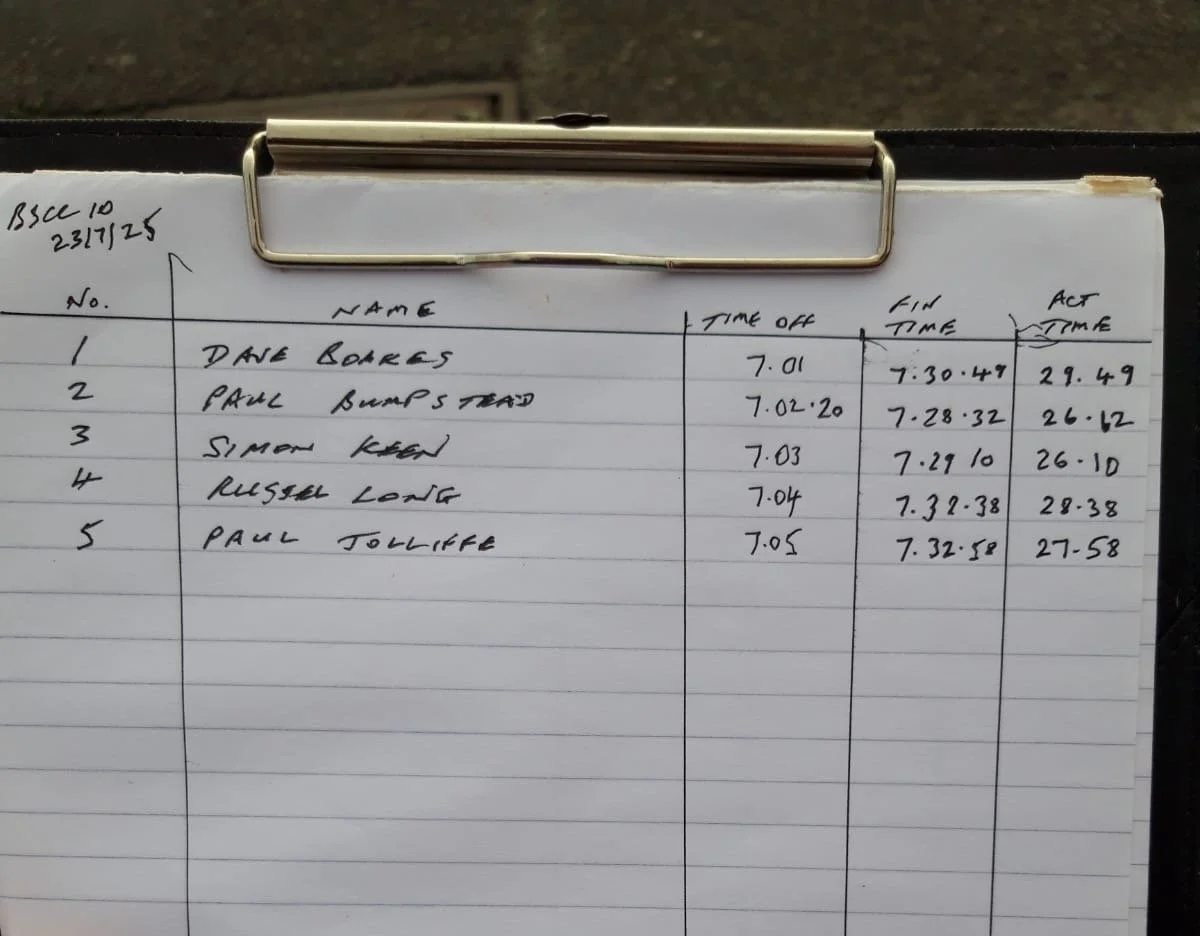 BSCC 10
23/7/25
No. NAME TIME OFF FIN TIME ACT TIME
1 DAVE BOAKES 7.01 7.30.49 29.49
2 PAUL BUMPSTEAD 7.02.20 7.28.32 26.12
3 SIMON KEEN 7.03 7.29 10 26.10
4 RUSSEL LONG 7.04 7.32.38 28.38
5 PAUL JOLLIFFE 7.05 7.32.58 27-58